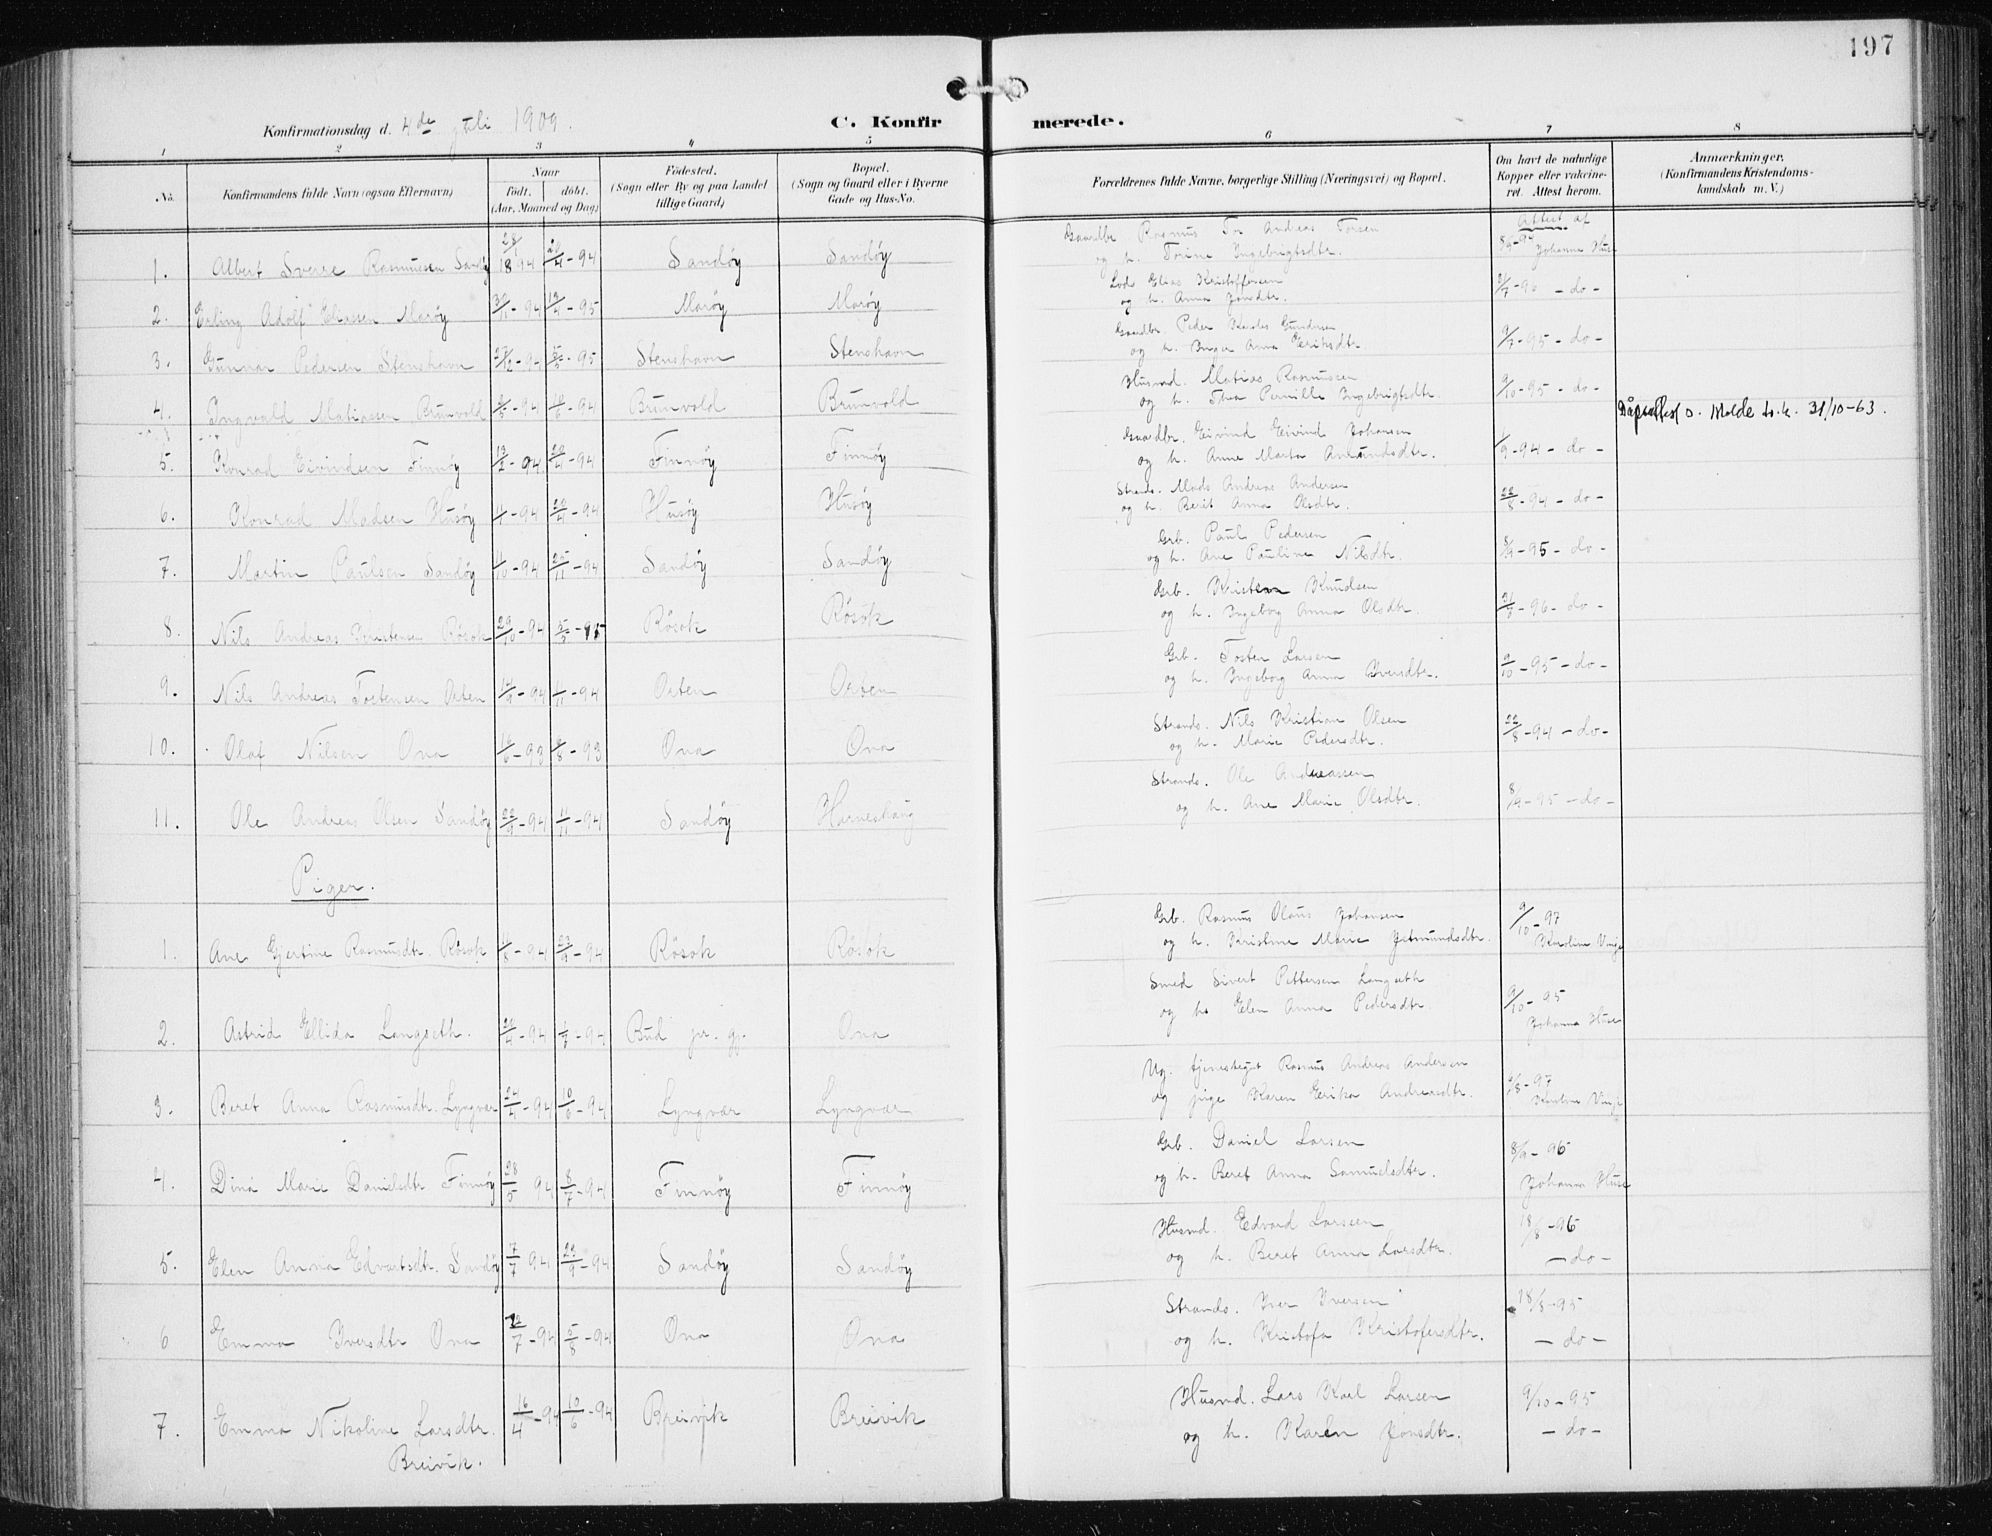 197
Konfirmationsdag d. 4de juli 1909.
C. Konfirmerede.
1 2 3 4 5 6 7 8
No. Konfirmandens fulde Navn (ogsaa Efternavn) Naar født. døbt. (Aar, Maaned og Dag) Fødested. (Sogn eller By og paa Landet tillige Gaard) Bopæl. (Sogn og Gaard eller i Byerne Gade og Hus-No. Forældrenes fulde Navne, borgerlige Stilling (Næringsvei) og Bopæl. Om havt de naturlige Kopper eller vakcineret. Attest herom. Anmærkninger. (Konfirmandens Kristendomskundskab m. V.)
1. Albert Sverre Rasmussen Sandøy 28/1 1894 -94 Sandøy Sandøy Gaardbr. Rasmus Tor Andreas Torsen Attest af
og h. Torine Ingebrigtsdtr. 8/9-94 Johanna Huse
2. Erling Adolf Eliassen Marøy 30/11-94 -95 Marøy Marøy Lods Elias Kristoffersen
og h. Anna Jonsdtr. -96 -do-
3. Gunnar Pedersen Stenshavn 27/12-94 5/5-95 Stenshavn Stenshavn Gaardbr. Peder Gundersen
og h. Inger Anna Eriksdtr. -95 -do-
4. Ingvald Matiassen Brunvold -94 -94 Brunvold Brunvold Husmd. Matias Rasmussen
og h. Thea Pernille Ingebrigtsdtr. 9/10-95 -do- Dåpsattest s. Molde t.k. 31/10-63.
5. Konrad Eivindsen Finnøy 13/2-94 -94 Finnøy Finnøy Gaardbr. Eivind Eivind Johansen
og h. Anne Marta Amundsdtr. 1/9-94 -do-
6. Konrad Madsen Husøy -94 -94 Husøy Husøy Strands. Mads Andreas Andersen
og h. Beret Anna Olsdtr. 22/8-94 -do-
7. Martin Paulsen Sandøy -94 25/11-94 Sandøy Sandøy Grb. Paul Pedersen
og h. Ane Pauline Nilsdtr. 8/9-95 -do-
8. Nils Andreas Kristensen Rösok 29/10-94 5/5-95 Rösok Rösok Grb. Kristen Knudsen
og h. Ingeborg Anna Olsdtr. -96 -do-
9. Nils Andreas Tostensen Orten 14/9-94 -94 Orten Orten Grb. Tosten Larsen
og h. Ingeborg Anna Iversdtr. 9/10-95 -do-
10. Olaf Nilsen Ona 16/6-93 -93 Ona Ona Strands. Nils Kristian Olsen
og h. Marie Pedersdtr. 22/8-94 -do-
11. Ole Andreas Olsen Sandøy 22/9-94 -94 Sandøy Harneshaug Strands. Ole Andreassen
og h. Ane Marie Olsdtr. 8/9-95 -do-
Piger.
1. Ane Gjertine Rasmusdtr. Rösok -94 23/9-94 Rösok Rösok Grb. Rasmus Olaus Johansen
og h. Kristine Marie Jetmundsdtr. 9/10-97 Karoline Vinje
2. Astrid Ellida Langseth. -94 -94 Bud pr. gj. Ona Smed Sivert Pettersen Langseth
og h. Elen Anna Pedersdtr. 9/10-95 Johanna Huse
3. Beret Anna Rasmusdtr. Lyngvær 24/4-94 10/6-94 Lyngvær Lyngvær Ug. tjenestegut Rasmus Andreas Andersen
og pige Karen Erika Andreasdtr. -97 Karoline Vinje
4. Dina Marie Danielsdtr Finnøy 28/5 94 8/7-94 Finnøy Finnøy Grb. Daniel Larsen
og h. Beret Anna Samuelsdtr. 8/9-96 Johanna Huse
5. Elen Anna Edvartsdtr. Sandøy 7/7 94 23/9-94 Sandøy Sandøy Husmd. Edvard Larssen
og h. Beret Anna Larsdtr. 18/8-96 -do-
6 Emma Iversdtr Ona -94 5/8-94 Ona Ona Strands. Iver Iversen
og h. Kristofa Kristofersdtr. 18/8-95 -do-
7. Emma Nikoline Larsdtr. 16/4-94 10/6-94 Breivik Breivik Husmd. Lars Karl Larsen
Breivik. og h. Karen Jonsdtr. 9/10-95 -do-